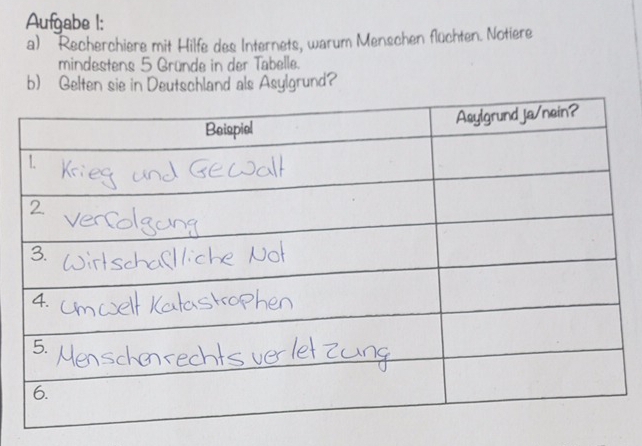 Aufgabe 1:
a) Recherchiere mit Hilfe des Internets, warum Menschen flüchten. Notiere
mindestens 5 Gründe in der Tabelle.
b) Gelten sie in Deutschland als Asylgrund?
Beispiel Asylgrund ja/nein?
1. Krieg und Gewalt
2. Verfolgung
3. Wirtschaftliche Not
4. Umwelt Katastrophen
5. Menschenrechtsverletzung
6.